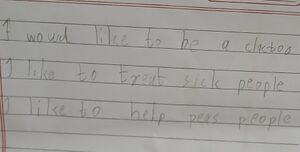 I would like to be a doctoo
I like to treat sick people
I like to help peas people